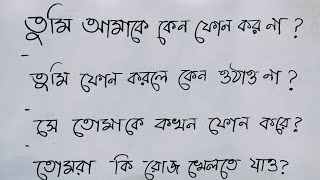 তুমি আমাকে কেন ফোন কর না ?
তুমি ফোন করলে কেন ওঠাও না ?
সে তোমাকে কখন ফোন করে?
তোমরা কি রোজ খেলতে যাও?